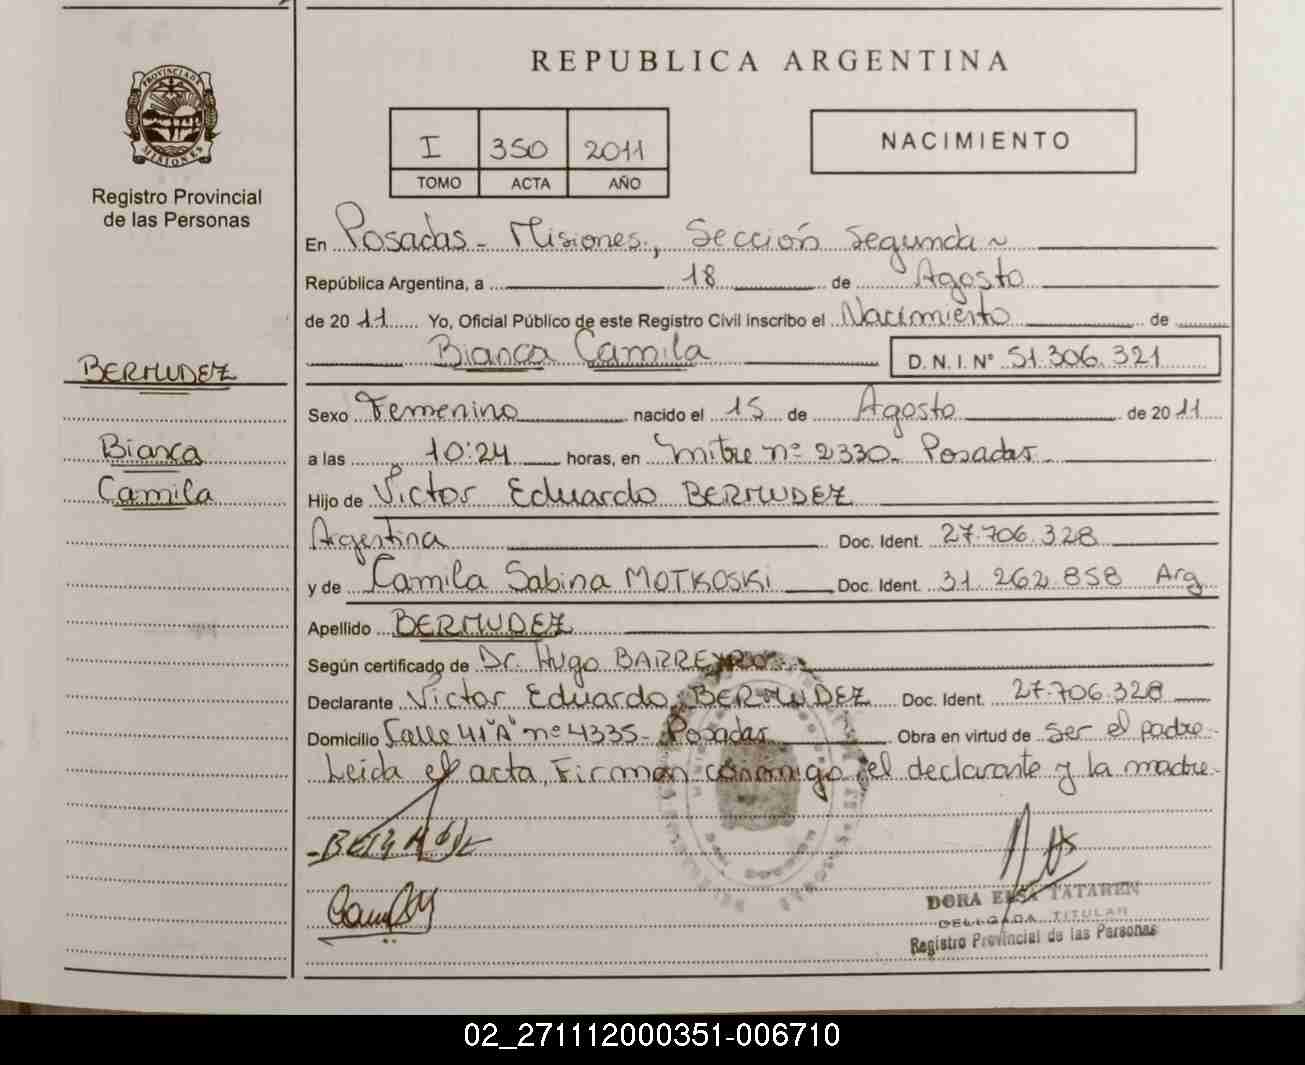 REPUBLICA ARGENTINA
PROVINCIA DE
MISIONES
Registro Provincial
de las Personas
I 350 2011
TOMO ACTA AÑO
NACIMIENTO
En Posadas - Misiones, Sección Segunda ~
República Argentina, a 18 de Agosto
de 2011 Yo, Oficial Público de este Registro Civil inscribo el Nacimiento de
Bianca Camila D. N. I. N° 51.306.321
BERMUDEZ
Bianca
Camila
Sexo Femenino nacido el 15 de Agosto de 2011
a las 10:24 horas, en Mitre nº 2330 - Posadas
Hijo de Victor Eduardo BERMUDEZ
Argentina Doc. Ident. 27.706.328
y de Camila Sabina MOTKOSKI Doc. Ident. 31.262.858 Arg
Apellido BERMUDEZ
Según certificado de Dr. Hugo BARREYRO
Declarante Victor Eduardo BERMUDEZ Doc. Ident. 27.706.328
Domicilio Calle 41"A" nº 4335 - Posadas Obra en virtud de ser el padre.
Leida el acta, Firman conmigo el declarante y la madre.
DORA ELSA TATAREN
DELEGADA TITULAR
Registro Provincial de las Personas
02_271112000351-006710